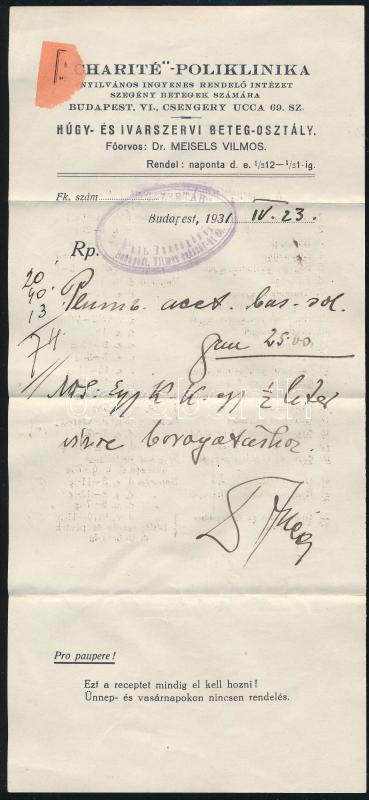 CHARITÉ"-POLIKLINIKA
NYILVÁNOS INGYENES RENDELŐ INTÉZET
SZEGÉNY BETEGEK SZÁMÁRA
BUDAPEST, VI., CSENGERY UCCA 69. SZ.
HÚGY- ÉS IVARSZERVI BETEG-OSZTÁLY.
Főorvos: Dr. MEISELS VILMOS.
Rendel: naponta d. e. ½12—½1-ig.
Fk. szám
Budapest, 1931 IV. 23.
Rp.
20
40
13
74
Plumb. acet. bas. sol.
25.00
Egy K. K. egy ½ liter
vizre borogatáshoz
Pro paupere!
Ezt a receptet mindig el kell hozni!
Ünnep- és vasárnapokon nincsen rendelés.